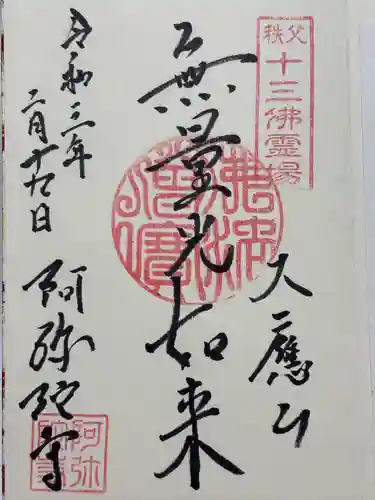 秩父
十三佛霊場
大應山
無量光如来
令和三年
二月十九日
阿弥陀寺
佛法僧寳
阿弥陀寺